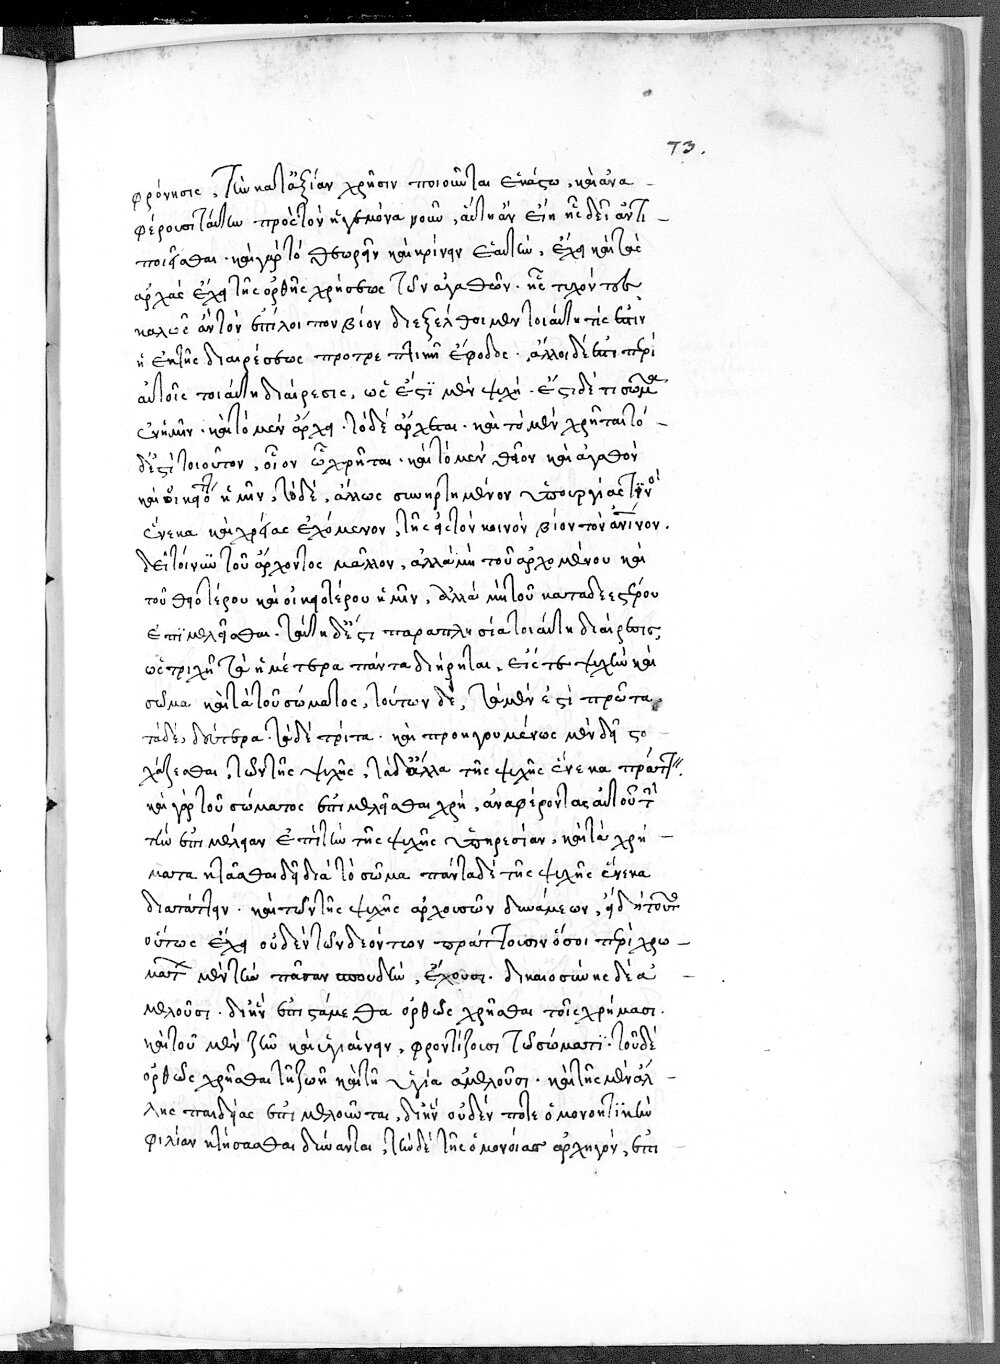 73.
φρόνησις, τὴν κατ' ἀξίαν χρῆσιν ποιοῦνται ἑκάστω, καὶ ἀνα-
φέρουσι ταύτην πρὸς τὸν ἡγεμόνα νοῦν, αὕτη ἂν εἴη ἧς δεῖ ἀντι-
ποιεῖσθαι. καὶ γὰρ τὸ θεωρεῖν καὶ κρίνειν ἑαυτὴν, ἔχει καὶ τὰς
ἀρχὰς ἔχει τῆς ὀρθῆς χρήσεως τῶν ἀγαθῶν. ἧς τυχόντες
καλῶς ἂν τὸν ἐπίλοιπον βίον διεξέλθοιμεν τοιαύτη τίς ἐστιν
ἡ ἐκ τῆς διαιρέσεως προτρεπτικὴ ἔφοδος. ἄλλοι δέ ἐπι περὶ
αὐτοῖς τοιαύτη διαίρεσις, ὡς ἔστι μὲν ψυχὴ. ἔστι δέ τι σῶμα
ἐν ἡμῖν. καὶ τὸ μὲν ἄρχει. τὸ δὲ ἄρχεται. καὶ τὸ μὲν χρῆται τὸ-
δ' ἔστι τοιοῦτον, οἷον ᾧ χρῆται. καὶ τὸ μὲν θεῖον καὶ ἀγαθὸν
καὶ οἰκειότατον ἡμῖν, τὸ δὲ, ἄλλως συνηρτημένον ὑπουργίας τινὸς
ἕνεκα καὶ χρείας ἐχόμενον, τῆς εἰς τὸν κοινὸν βίον τὸν ἀνθρώπινον.
δεῖ τοίνυν τοῦ ἄρχοντος μᾶλλον, ἀλλὰ μὴ τοῦ ἀρχομένου καὶ
τοῦ θειοτέρου καὶ οἰκειοτέρου ἡμῖν, ἀλλὰ μὴ τοῦ καταδεεστέρου
ἐπιμελεῖσθαι. ταύτη δ' ἔστι παραπλησία τοιαύτη διαίρεσις,
ὡς τριχῆ τὰ ἡμέτερα πάντα διήρηται, εἴς τε ψυχὴν καὶ
σῶμα καὶ τὰ τοῦ σώματος, τούτων δὲ, τὰ μὲν ἐστὶ πρῶτα
τὰ δὲ, δεύτερα. τὰ δὲ τρίτα. καὶ προηγουμένως μὲν δεῖ στο-
χάζεσθαι, τῶν τῆς ψυχῆς, τὰ δ' ἄλλα τῆς ψυχῆς ἕνεκα πράττειν.
καὶ γὰρ τοῦ σώματος ἐπιμελεῖσθαι χρὴ, ἀναφέροντας αὐτοῦ
τὴν ἐπιμέλειαν ἐπὶ τὴν τῆς ψυχῆς ὑπηρεσίαν, καὶ τὰ χρή-
ματα κτᾶσθαι δεῖ διὰ τὸ σῶμα πάντα δὲ τῆς ψυχῆς ἕνεκα
διατάττειν. καὶ τῶν τῆς ψυχῆς ἀρχουσῶν δυνάμεων, εἰ δὴ τοῦθ'
οὕτως ἔχει οὐδὲν τῶν δεόντων πράττουσιν ὅσοι περὶ χρη-
μάτων μὲν τὴν πᾶσαν σπουδὴν, ἔχουσι. δικαιοσύνης δὲ ἀ-
μελοῦσι. δι' ἣν ἐπιστάμεθα ὀρθῶς χρῆσθαι τοῖς χρήμασι.
καὶ τοῦ μὲν ζῆν καὶ ὑγιαίνειν, φροντίζουσι τῶ σώματι. τοῦ δὲ
ὀρθῶς χρῆσθαι τῆ ζωῆ καὶ τῆ ὑγία ἀμελοῦσι. καὶ τῆς μὲν ἄλ-
λης παιδείας ἐπιμελοῦνται, δι' ἣν οὐδέν ποτε ὁμονοητικὴν
φιλίαν κτήσασθαι δύνανται, τὴν δὲ τῆς ὁμονοίας ἀρχηγὸν, ἐπι-